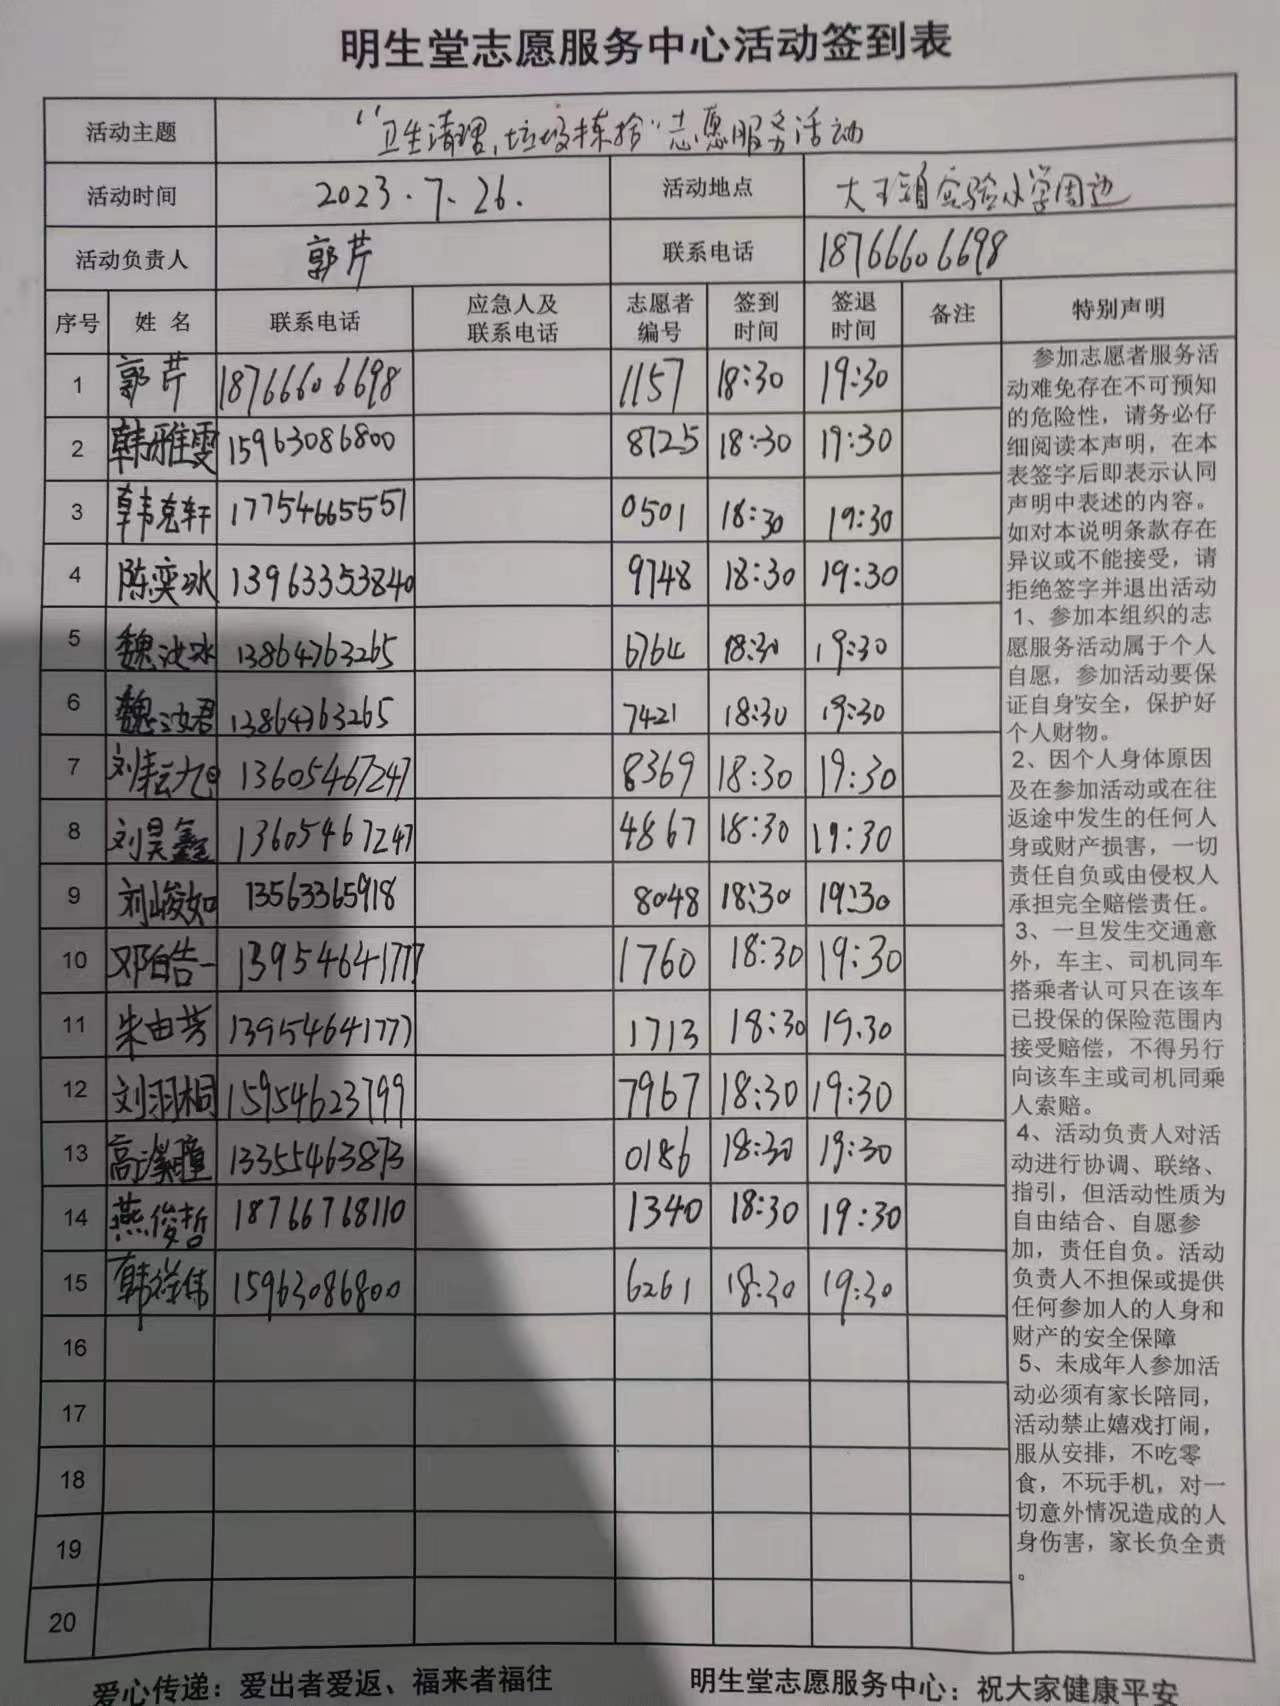 明生堂志愿服务中心活动签到表
活动主题 “卫生清理,垃圾拣拾”志愿服务活动
活动时间 2023.7.26. 活动地点 大王镇实验小学周边
活动负责人 郭芹 联系电话 18766606698
序号 姓名 联系电话 应急人及联系电话 志愿者编号 签到时间 签退时间 备注 特别声明
1 郭芹 18766606698 1157 18:30 19:30
2 韩雅雯 15963086800 8725 18:30 19:30
3 韩克轩 17754665551 0501 18:30 19:30
4 陈奕冰 13963353840 9748 18:30 19:30
5 魏汝冰 13864763265 6764 18:30 19:30
6 魏汝君 13864763265 7421 18:30 19:30
7 刘耘旭 13605467247 8369 18:30 19:30
8 刘昊鑫 13605467247 4867 18:30 19:30
9 刘峻如 13563365918 8048 18:30 19:30
10 邓皓一 13954641777 1760 18:30 19:30
11 朱由芳 13954641777 1713 18:30 19.30
12 刘羽桐 15954623799 7967 18:30 19:30
13 高瞳 13355463873 0186 18:30 19:30
14 燕俊哲 18766768110 1340 18:30 19:30
15 韩祥伟 15963086800 6261 18:30 19:30
16
17
18
19
20
参加志愿者服务活
动难免存在不可预知
的危险性，请务必仔
细阅读本声明，在本
表签字后即表示认同
声明中表述的内容。
如对本说明条款存在
异议或不能接受，请
拒绝签字并退出活动
1、参加本组织的志
愿服务活动属于个人
自愿，参加活动要保
证自身安全，保护好
个人财物。
2、因个人身体原因
及在参加活动或在往
返途中发生的任何人
身或财产损害，一切
责任自负或由侵权人
承担完全赔偿责任。
3、一旦发生交通意
外，车主、司机同车
搭乘者认可只在该车
已投保的保险范围内
接受赔偿，不得另行
向该车主或司机同乘
人索赔。
4、活动负责人对活
动进行协调、联络、
指引，但活动性质为
自由结合、自愿参
加，责任自负。活动
负责人不担保或提供
任何参加人的人身和
财产的安全保障
5、未成年人参加活
动必须有家长陪同，
活动禁止嬉戏打闹，
服从安排，不吃零
食，不玩手机，对一
切意外情况造成的人
身伤害，家长负全责
。
爱心传递：爱出者爱返、福来者福往 明生堂志愿服务中心：祝大家健康平安